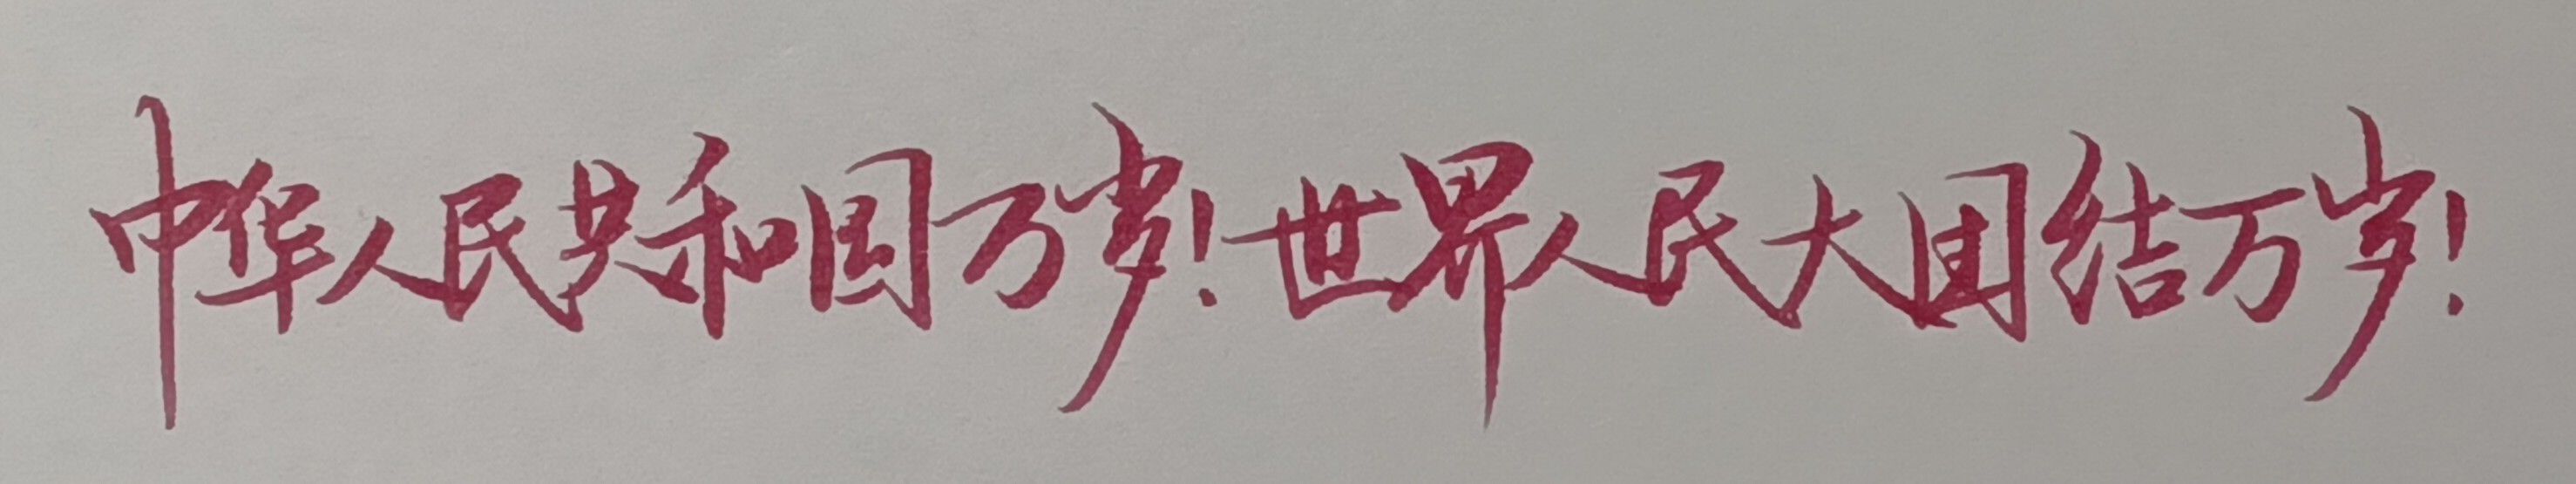 中华人民共和国万岁！世界人民大团结万岁！